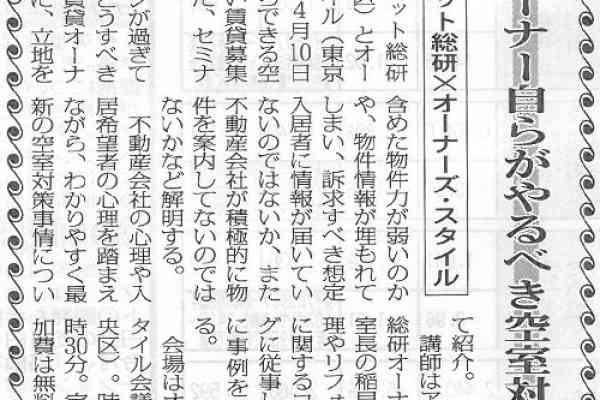 ーナー自らがやるべき空室対
ット総研×オーナーズ・スタイル
ット総研
区)とオー
ル(東京
4月10日
らできる空
い賃貸募集
た、セミナ
ンが過ぎて
どうすべき
賃貸オーナ
に、立地を
含めた物件力が弱いのか
や、物件情報が埋もれて
しまい、訴求すべき想定
入居者に情報が届いてい
ないのではないか、また
不動産会社が積極的に物
件を案内してないのでは
ないかなど解明する。
不動産会社の心理や入
居希望者の心理を踏まえ
ながら、わかりやすく最
新の空室対策事情につい
て紹介。
講師は
総研オーナ
室長の稲
理やリフォ
に関する
グに従事し
に事例を
る。
会場は
タイル会議
央区)。時
時30分。
加費は無料